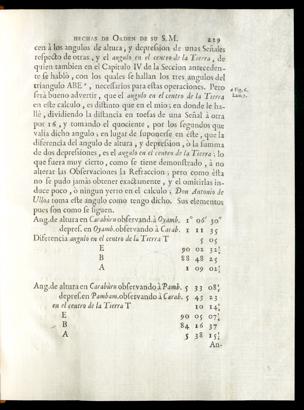 HECHAS DE ORDEN DE SU S.M. 229
cen à los angulos de altura, y depression de unas Señales
respecto de otras, y el angulo en el centro de la Tierra, de
quien tambien en el Capitulo IV de la Seccion anteceden-
te se hablò, con los quales se hallan los tres angulos del
triangulo ABE*, necessarios para estas operaciones. Pero
serà bueno advertir, que el angulo en el centro de la Tierra
en este calculo, es distinto que en el mio; en donde le ha-
llè, dividiendo la distancia en toesas de una Señal à otra
por 16, y tomando el quociente, por los segundos que
valia dicho angulo; en lugar de suponerse en este, que la
diferencia del angulo de altura, y depression, ò la summa
de dos depressiones, es el angulo en el centro de la Tierra: lo
que fuera muy cierto, como se tiene demonstrado, à no
alterar las Observaciones la Refraccion; pero como èsta
no se pudo jamàs obtener exactamente, y el omitirlas indu-
ce poco, ò ningun yerro en el calculo; Don Antonio de
Ulloa toma este angulo como tengo dicho. Sus elementos
pues son como se siguen.
* Fig. 6.
Lam. 7.
Ang. de altura en Carabùru observand. à Oyamb. 1° 06' 30"
depres. en Oyamb. observando à Carab. 1 11 35
Diferencia angulo en el centro de la Tierra T 5 05
E 90 02 32½
B 88 48 25
A 1 09 02½
Ang. de altura en Carabùru observando à Pamb. 5 33 08½
depres. en Pambam. observando à Carab. 5 43 23
en el centro de la Tierra T 10 14½
E 90 05 07¼
B 84 16 37
A 5 38 15¾
An-